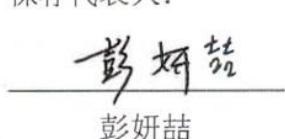 保荐代表人:
彭妍喆
彭妍喆